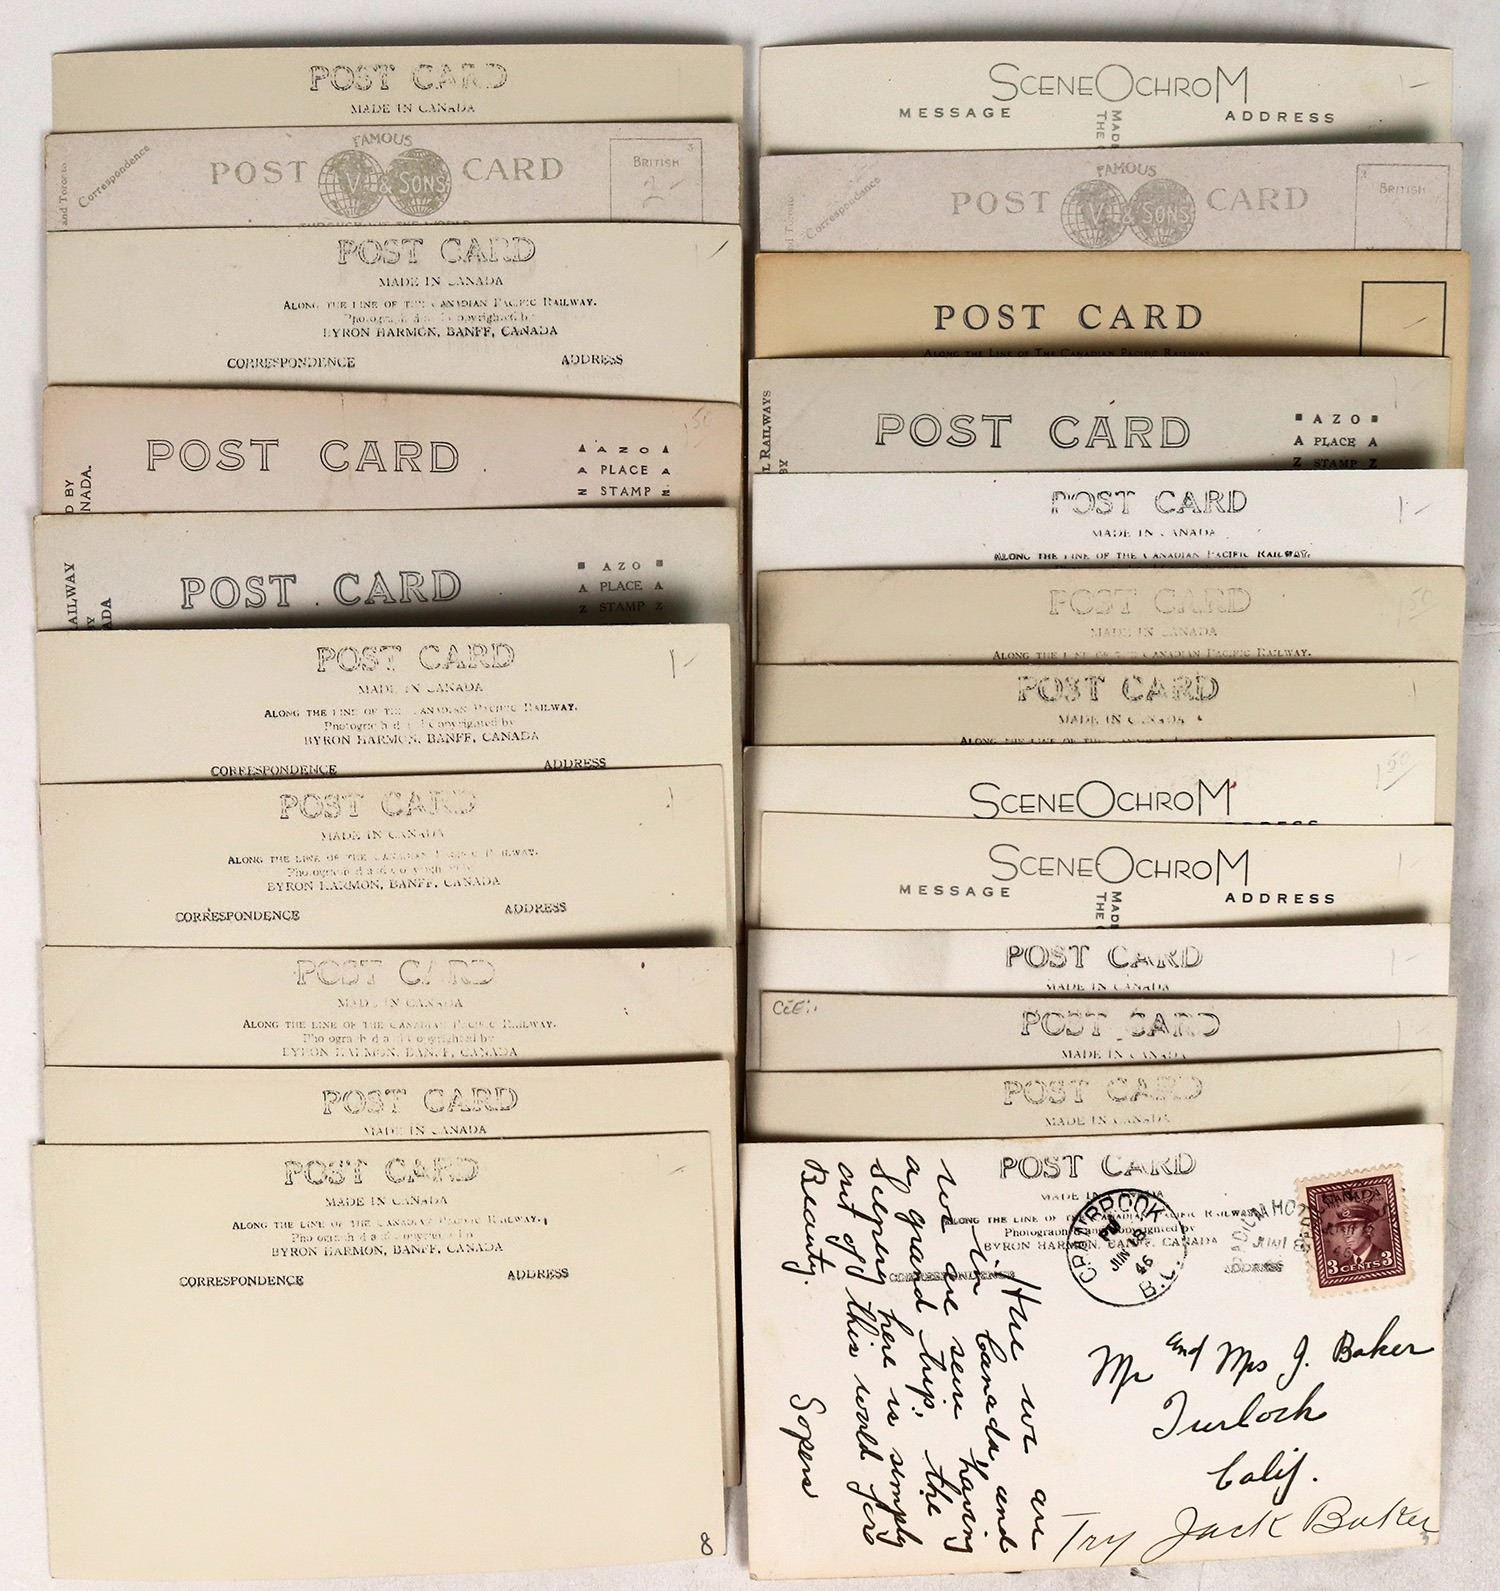 POST CARD
MADE IN CANADA
and Toronto
Correspondence
POST CARD
FAMOUS
V & SONS
BRITISH
3
2-
POST CARD
MADE IN CANADA
ALONG THE LINE OF THE CANADIAN PACIFIC RAILWAY.
Photographed and Copyrighted by
BYRON HARMON, BANFF, CANADA
CORRESPONDENCE ADDRESS
POST CARD
D BY
NADA.
AZO
A PLACE A
Z STAMP Z
150
AILWAY
BY
ADA
POST CARD
AZO
A PLACE A
Z STAMP Z
POST CARD
1-
MADE IN CANADA
ALONG THE LINE OF THE CANADIAN PACIFIC RAILWAY.
Photographed and Copyrighted by
BYRON HARMON, BANFF, CANADA
CORRESPONDENCE ADDRESS
POST CARD
MADE IN CANADA
ALONG THE LINE OF THE CANADIAN PACIFIC RAILWAY.
Photographed and Copyrighted by
BYRON HARMON, BANFF, CANADA
CORRESPONDENCE ADDRESS
POST CARD
MADE IN CANADA
ALONG THE LINE OF THE CANADIAN PACIFIC RAILWAY.
Photographed and Copyrighted by
BYRON HARMON, BANFF, CANADA
POST CARD
MADE IN CANADA
POST CARD
MADE IN CANADA
ALONG THE LINE OF THE CANADIAN PACIFIC RAILWAY.
Photographed and Copyrighted by
BYRON HARMON, BANFF, CANADA
CORRESPONDENCE ADDRESS
8
SCENEOCHROM
1-
MESSAGE ADDRESS
MADE
THE
and Toronto
Correspondence
POST CARD
FAMOUS
V & SONS
BRITISH
3
POST CARD
ALONG THE LINE OF THE CANADIAN PACIFIC RAILWAY
L RAILWAYS
BY
POST CARD
AZO
A PLACE A
Z STAMP Z
POST CARD
1-
MADE IN CANADA
ALONG THE LINE OF THE CANADIAN PACIFIC RAILWAY.
POST CARD
150
MADE IN CANADA
ALONG THE LINE OF THE CANADIAN PACIFIC RAILWAY.
POST CARD
MADE IN CANADA
SCENEOCHROM
150
ADDRESS
SCENEOCHROM
1-
MESSAGE ADDRESS
MADE
THE
POST CARD
1-
MADE IN CANADA
POST CARD
MADE IN CANADA
POST CARD
MADE IN CANADA
POST CARD
MADE IN CANADA
ALONG THE LINE OF THE CANADIAN PACIFIC RAILWAY.
Photographed and Copyrighted by
BYRON HARMON, BANFF, CANADA
CORRESPONDENCE ADDRESS
CRANBROOK
B.C.
CANADA
3 CENTS 3
Here we are
in Canada, and
we are sein having
a grand trip. the
Scenery here is simply
out of this world for
Beauty.
Sopers
Mr and Mrs J. Baker
Turlock
Calif.
Try Jack Baker